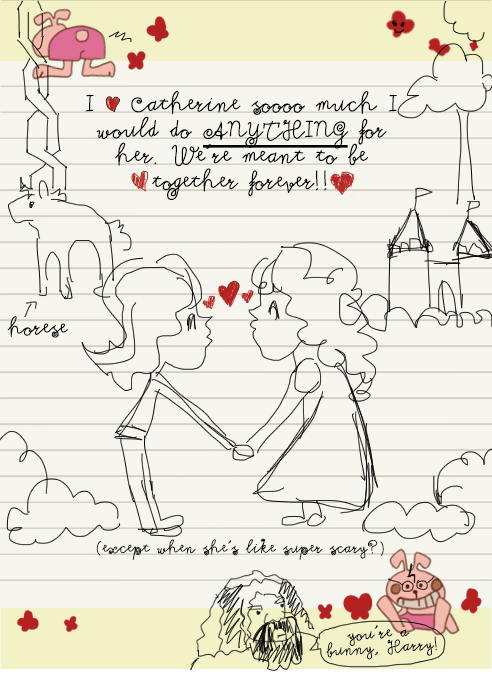 I Catherine soooo much I
would do ANYTHING for
her. We're meant to be
together forever!!
horese
(except when she's like super scary?)
you're a
bunny, Harry!